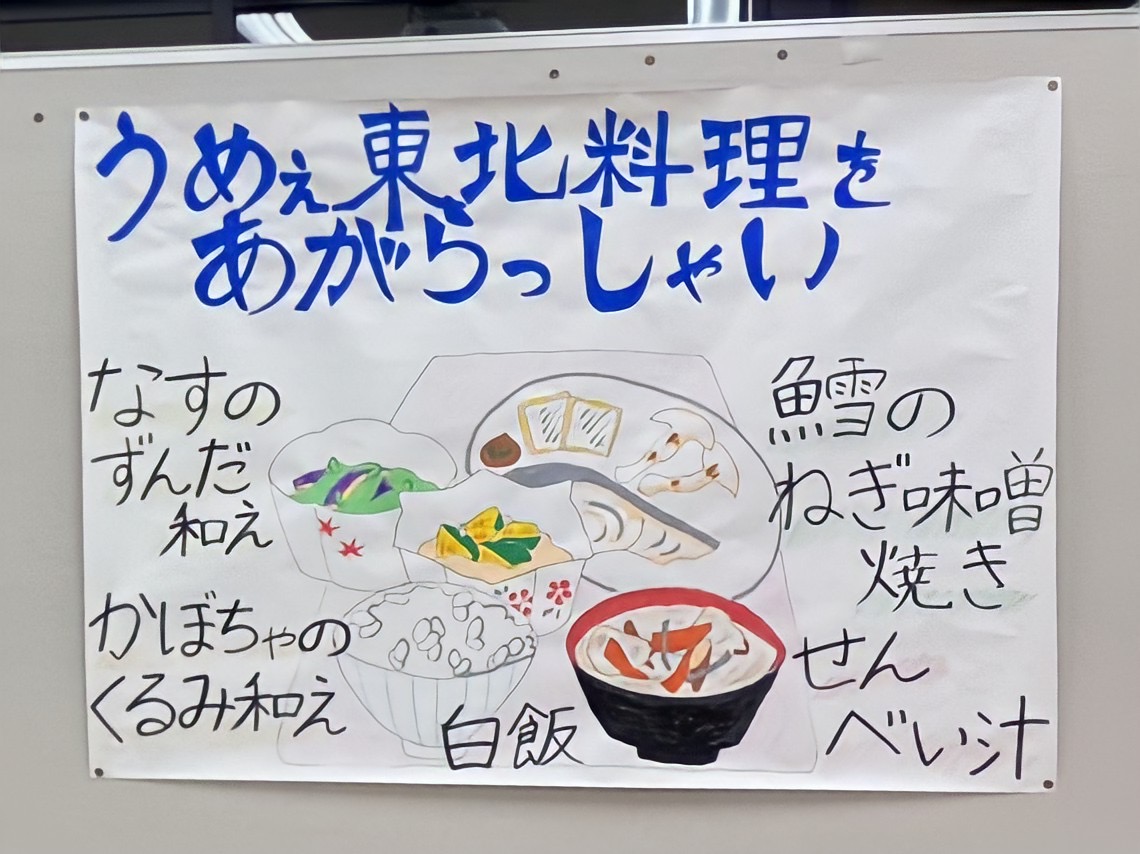 うめぇ東北料理を
あがらっしゃい
なすの
ずんだ
和え
かぼちゃの
くるみ和え
白飯
鱈の
ねぎ味噌
焼き
せん
べい汁